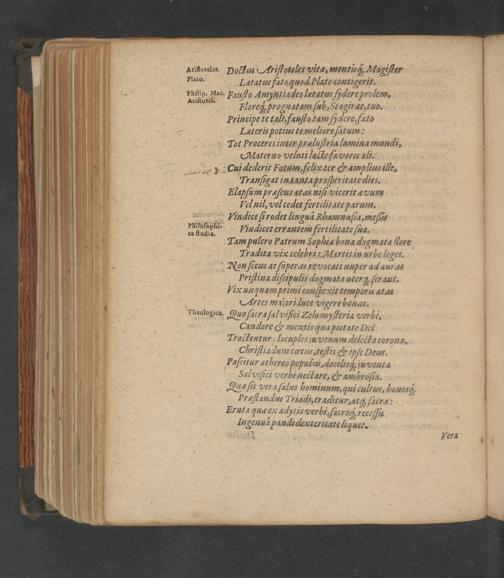 Aristoteles. Doctus Aristoteles vitæ, mentisq́; Magister
Plato. Lætatus fato quod Plato contigerit.
Philip. Mac. Fausto Amyntiades lætatus sydere prolem,
Aristotel. Floreq́; prognatam sub, Stagiræ, tuo.
Principe te tali, fausto tam sydere, fato
Læteris potius te meliore satum:
Tot Proceres inter prælustria lumina mundi,
Materno veluti lacte favoris ali.
Cui dederit Fatum, felix ter & amplius ille,
Transigat in tanta prosperitate dies.
Elapsum præsens ætas nisi vicerit ævum
Vel nil, vel cedet fertilitate parum.
Vindice si rodet linguâ Rhamnusia, messis
Philosophi- Vindicet errantem fertilitate sua.
ca studia. Tam pulcro Patrum Sophiæ bona dogmata flore
Tradita vix celebri Martis in urbe leges.
Non secus ac superas revocati nuper ad auras
Pristina discipulis dogmata uterq́; serant.
Vix unquam primi conspexit temporis ætas
Artes majori luce vigere bonas.
Theologica. Quo sacra salvifici Zelo mysteria verbi,
Candore & mentis qua pietate Dei
Tractentur: locuples juvenum delecta corona,
Christiadum cœtus, testis & ipse Deus.
Pascitur æthereo populus, docilisq́; juventa
Salvifici verbi nectare, & ambrosia.
Quæ sit vera salus hominum, qui cultus, honosq́;
Præstandus Triadi, traditur, atq́; sacræ:
Eruta quæ ex adytis verbi, sacroq́; recessu
Ingenuâ pandi dexteritate liquet.
Vera